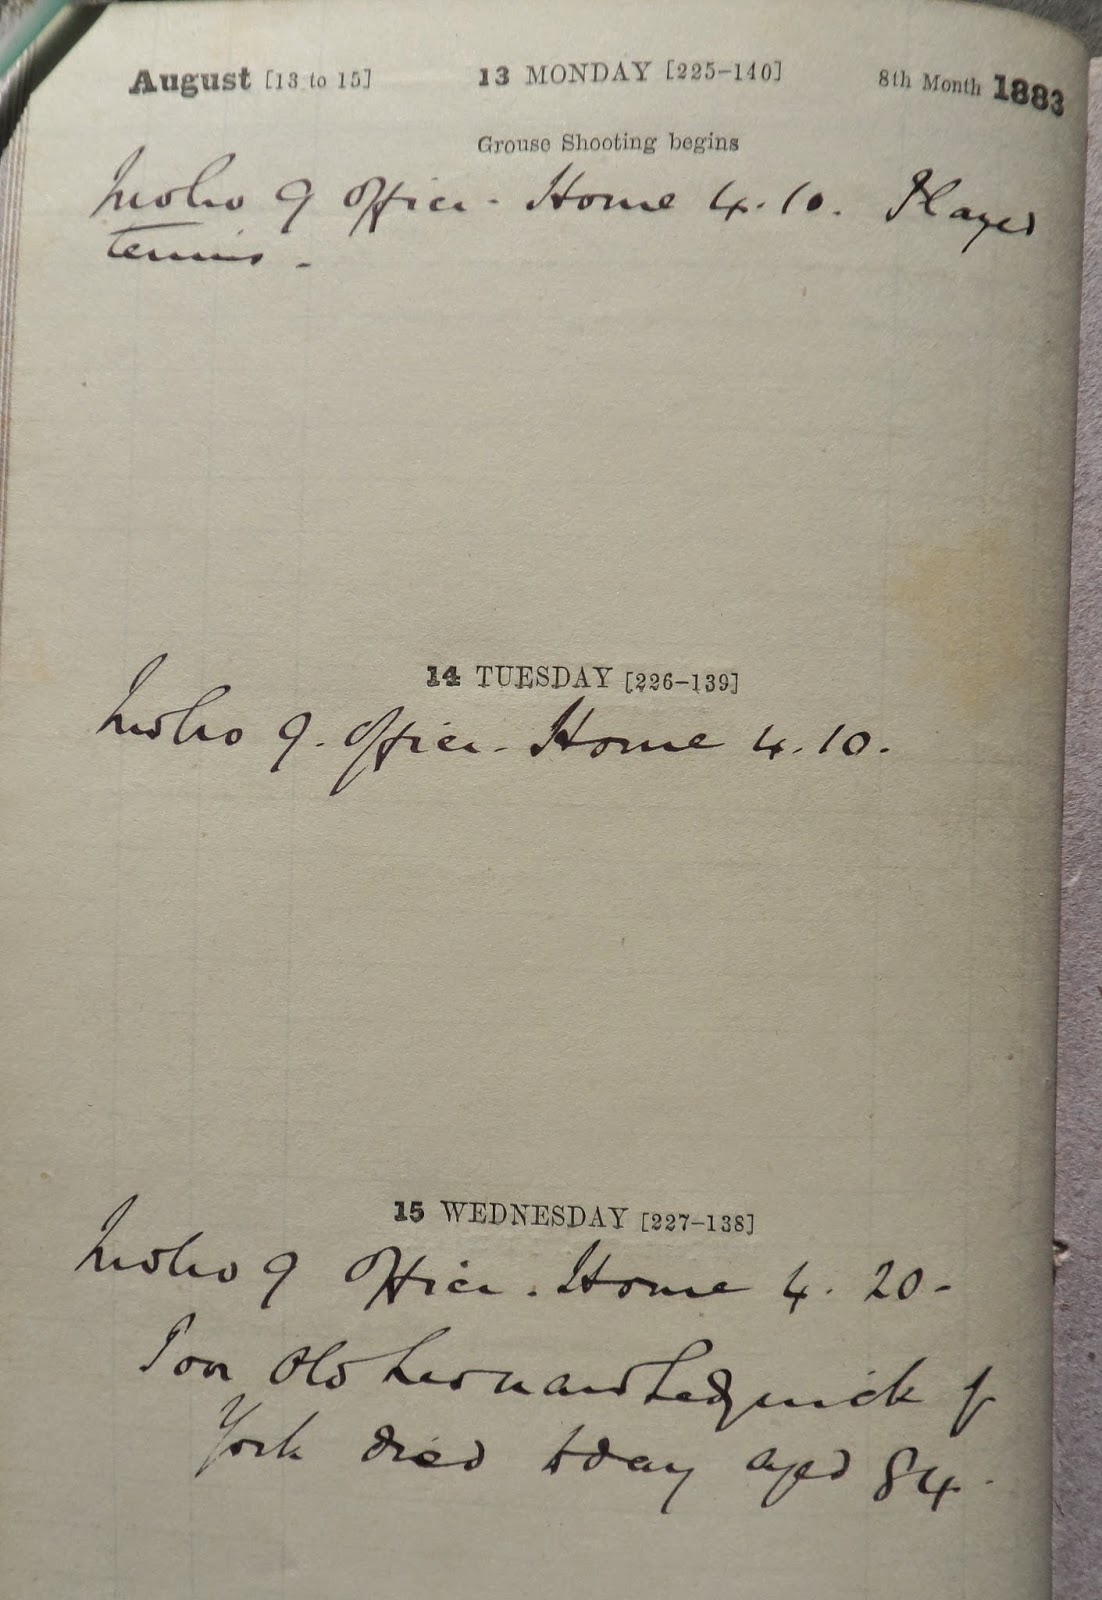 August [13 to 15] 13 MONDAY [225–140] 8th Month 1883
Grouse Shooting begins
9 Office - Home 4.10. Played
tennis -
14 TUESDAY [226–139]
9. Office - Home 4.10.
15 WEDNESDAY [227–138]
9 Office. Home 4.20-
Poor Old of
York died today aged 84.